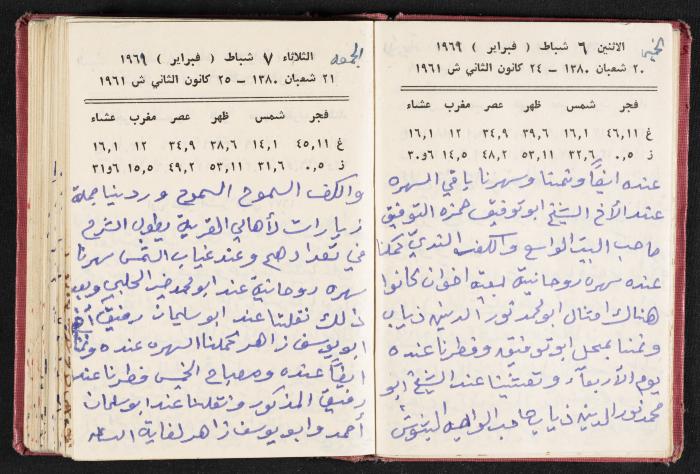 الخميس
الاثنين ٦ شباط ( فبراير ) ١٩٦٩
٢٠ شعبان ١٣٨٠ – ٢٤ كانون الثاني ش ١٩٦١
فجر شمس ظهر عصر مغرب عشاء
غ ٤٦,١١ ١٦,١ ٣٩,٦ ٣٤,٩ ١٢ ١٦,١
ز ٥,٠ ٣٢,٦ ٥٣,١١ ٤٨,٢ ١٤,٥ ٣٠و٦
عنده ايضاً ونمنا وسهرنا باقي السهره
عند الأخ الشيخ ابو توفيق حمزه التوفيق
صاحب البيت الواسع والكف الندي كملنا
عنده سهره روحانية لبعية اخوان كانوا
هناك امثال ابو محمد نور الدين ذياب
ونمنا بمحل ابو توفيق وفطرنا عنده
يوم الأربعاء وتعشينا عند الشيخ ابو
محمد نور الدين ذياب صاحب الواجب
الجمعه
الثلاثاء ٧ شباط ( فبراير ) ١٩٦٩
٢١ شعبان ١٣٨٠ – ٢٥ كانون الثاني ش ١٩٦١
فجر شمس ظهر عصر مغرب عشاء
غ ٤٥,١١ ١٤,١ ٣٨,٦ ٣٤,٩ ١٢ ١٦,١
ز ٥,٠ ٣١,٦ ٥٣,١١ ٤٩,٢ ١٥,٥ ٣١و٦
والكف السموح السموح وردينا جملة
زيارات لأهالي القرية يطول الشرح
في تعدادهم وعند غياب الشمس سهرنا
سهره روحانية عند ابو محمد خير الحلبي وبعد
ذلك نقلنا عند ابو سليمان رفيق
ابو يوسف زاهر كملنا السهره عنده ونمنا
ايضاً عنده وصباح الخميس فطرنا عند
رفيق المذكور ونقلنا عند ابو سلمان
أحمد وابو يوسف زاهر لغاية